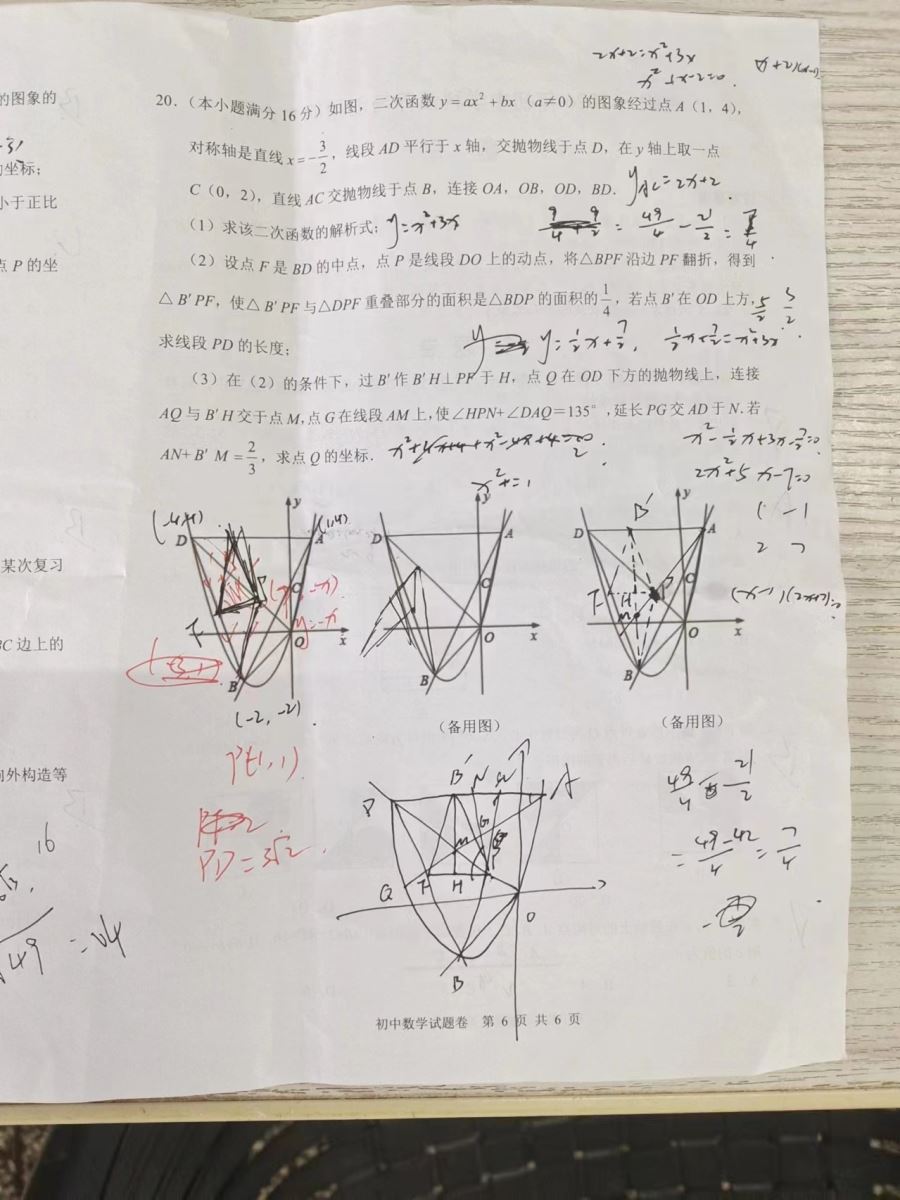 2x+2=x²+3x
x²+x-2=0.
的图象的
20．（本小题满分 16 分）如图，二次函数 y=ax²+bx（a≠0）的图象经过点 A（1，4），
对称轴是直线 x=-3/2，线段 AD 平行于 x 轴，交抛物线于点 D，在 y 轴上取一点
的坐标；
C（0，2），直线 AC 交抛物线于点 B，连接 OA，OB，OD，BD．
y_AC=2x+2
小于正比
（1）求该二次函数的解析式；
y=x²+3x
= 49/4 - 21/2 = 7/4
点 P 的坐
（2）设点 F 是 BD 的中点，点 P 是线段 DO 上的动点，将△BPF 沿边 PF 翻折，得到
△B′PF，使△B′PF 与△DPF 重叠部分的面积是△BDP 的面积的1/4，若点 B′在 OD 上方，
求线段 PD 的长度；
y=1/2x+7/2, 1/2x+7/2=x²+3x
（3）在（2）的条件下，过 B′作 B′H⊥PF 于 H，点 Q 在 OD 下方的抛物线上，连接
AQ 与 B′H 交于点 M，点 G 在线段 AM 上，使∠HPN+∠DAQ=135°，延长 PG 交 AD 于 N．若
AN+B′M=2/3，求点 Q 的坐标．
x²-1/2x+3x-7/2=0
2x²+5x-7=0
y
D
A
C
O
x
B
(-2,-2)
y=-x
y
D
A
C
O
x
B
（备用图）
B′
y
D
A
C
F
H
M
P
O
x
B
（备用图）
某次复习
BC 边上的
向外构造等
P(-1,1)
PD=3√2.
B′
N
A
D
M
G
Q
F
H
O
B
= 49-42/4 = 7/4
16
初中数学试题卷 第 6 页 共 6 页